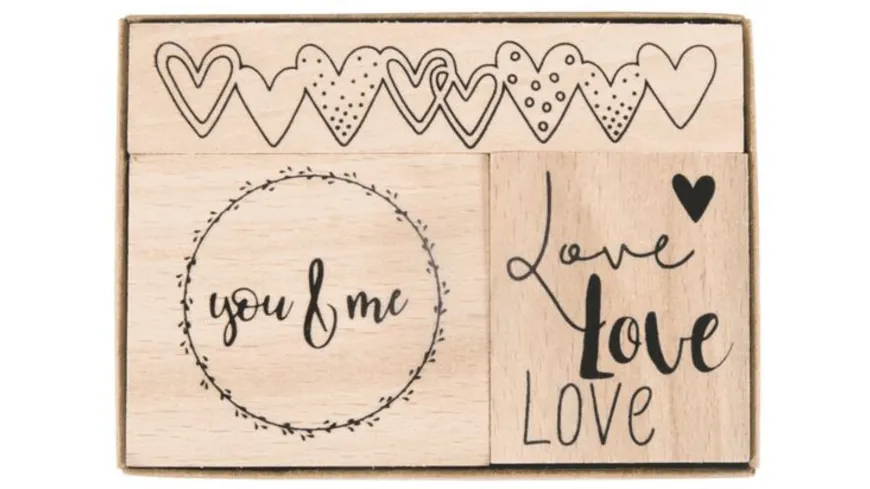 you & me
Love
Love
LOVE